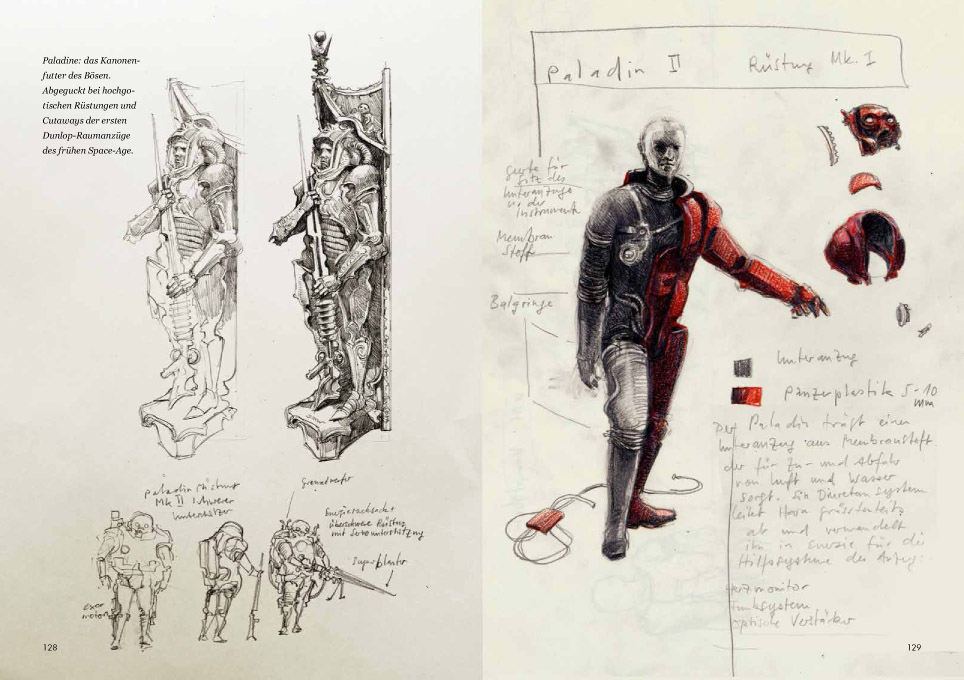 Paladine: das Kanonen-
futter des Bösen.
Abgeguckt bei hochgo-
tischen Rüstungen und
Cutaways der ersten
Dunlop-Raumanzüge
des frühen Space-Age.
Paladin Rüstung
Mk II schwerer
Unterstützer
Granatwerfer
überschwere Rüstung
mit Servounterstützung
Superblaster
128
Paladin II
Rüstung Mk. I
Gurte für
Sitz des
Unteranzugs
u. der
Instrumente
Membran
Stoff
Balgringe
Unteranzug
Panzerplastik 5-10
mm
Der Paladin trägt einen
Unteranzug aus Membranstoff
der für Zu- und Abfuhr
von Luft und Wasser
sorgt. Ein
leitet
ab und verwandelt
ihn in Energie für die
Hilfssysteme des Anzug.
Herzmonitor
Funksystem
optische Verstärker
129